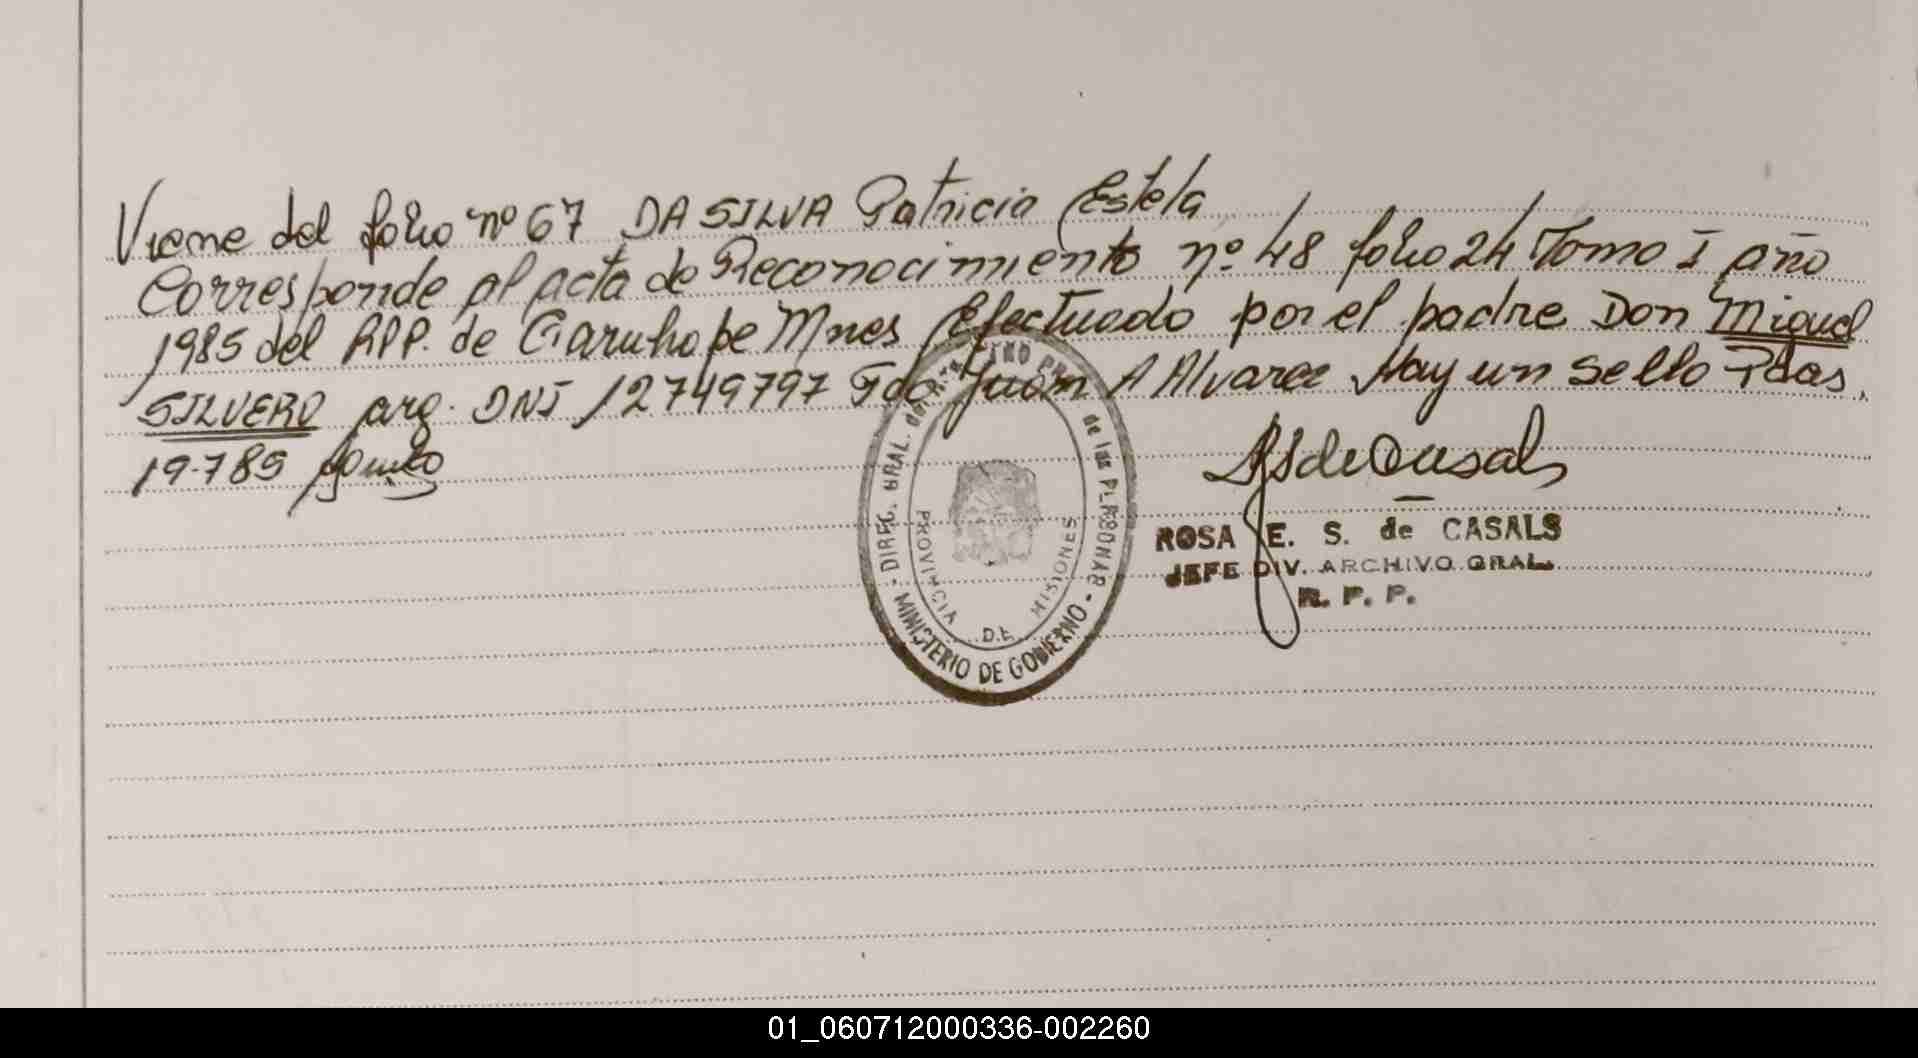 Viene del folio nº 67 DA SILVA Patricia Estela
Corresponde al acta de Reconocimiento nº 48 folio 24 Tomo I año
1985 del RPP. de Garuhape Mnes Efectuado por el padre Don Miguel
SILVERO arg. DNI 12749797 Fdo Juan A Alvarez Hay un sello Pdas,
19-7-85
DIREC. GRAL. del
de las PERSONAS
PROVINCIA DE MISIONES
MINISTERIO DE GOBIERNO
ROSA E. S. de CASALS
JEFE DIV. ARCHIVO GRAL.
R. P. P.
01_060712000336-002260